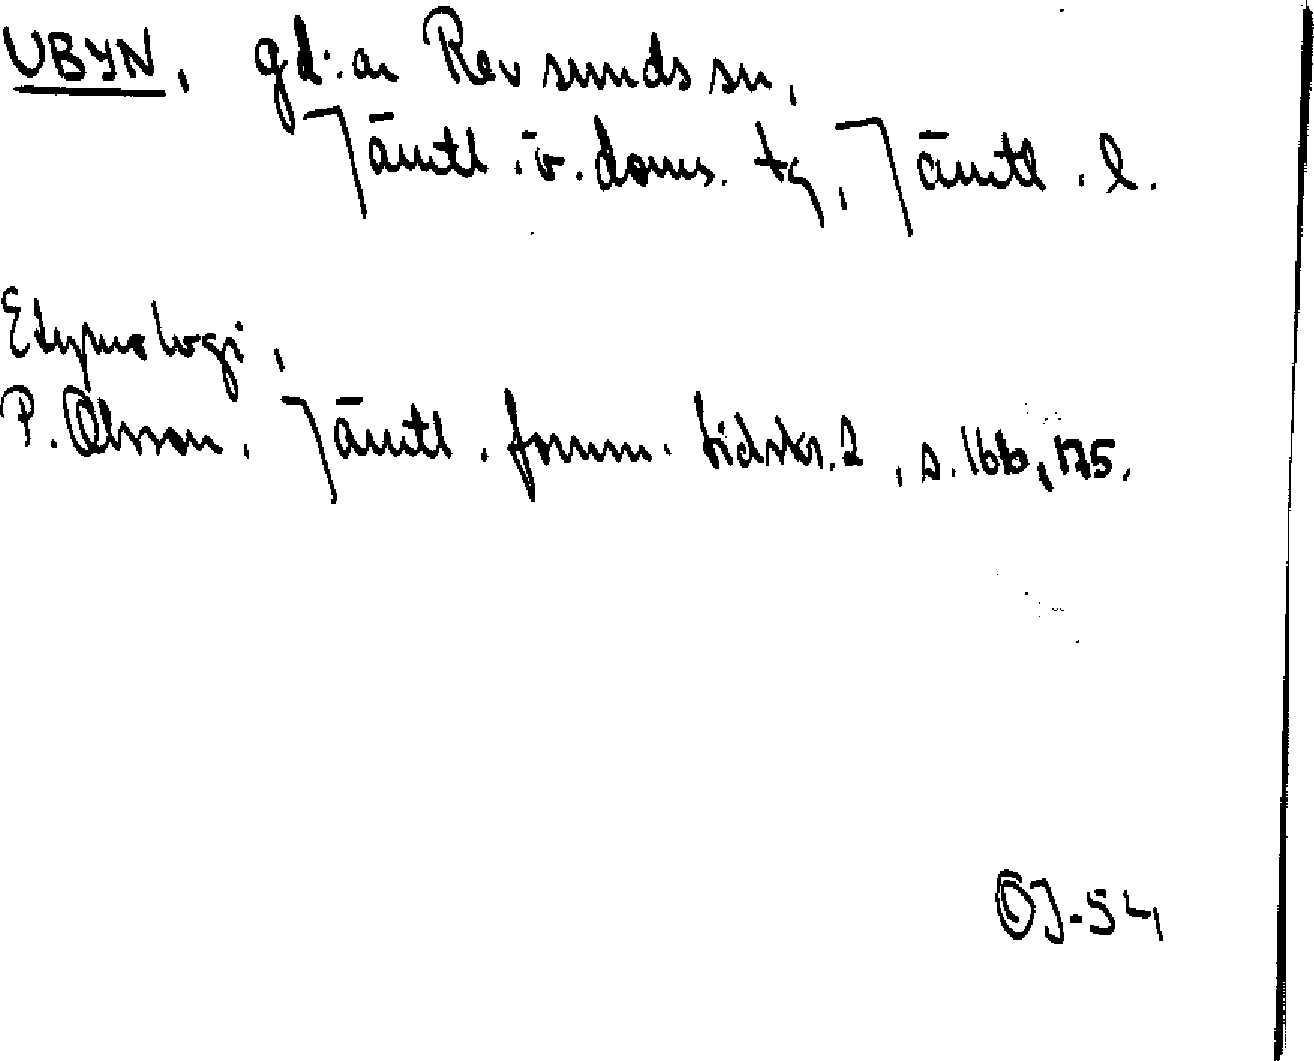 UBYN, gd:ar Revsunds sn,
Jämtl. ö. doms. tg, Jämtl. l.
Etymologi,
P. Olsson. Jämtl. fornm. tidskr. 2, s. 166, 175.
OJ-54